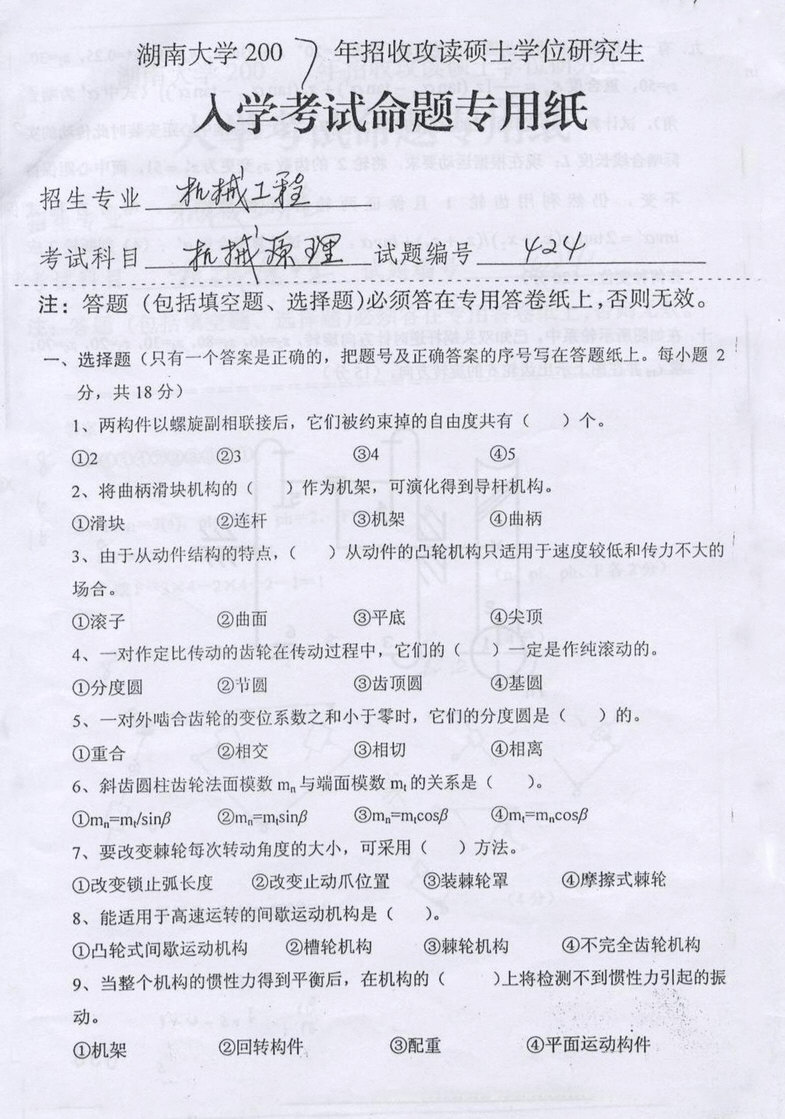 湖南大学2007年招收攻读硕士学位研究生
入学考试命题专用纸
招生专业 机械工程
考试科目 机械原理 试题编号 424
注：答题（包括填空题、选择题）必须答在专用答卷纸上，否则无效。
一、选择题（只有一个答案是正确的，把题号及正确答案的序号写在答题纸上。每小题 2
分，共 18 分）
1、两构件以螺旋副相联接后，它们被约束掉的自由度共有（ ）个。
①2 ②3 ③4 ④5
2、将曲柄滑块机构的（ ）作为机架，可演化得到导杆机构。
①滑块 ②连杆 ③机架 ④曲柄
3、由于从动件结构的特点，（ ）从动件的凸轮机构只适用于速度较低和传力不大的
场合。
①滚子 ②曲面 ③平底 ④尖顶
4、一对作定比传动的齿轮在传动过程中，它们的（ ）一定是作纯滚动的。
①分度圆 ②节圆 ③齿顶圆 ④基圆
5、一对外啮合齿轮的变位系数之和小于零时，它们的分度圆是（ ）的。
①重合 ②相交 ③相切 ④相离
6、斜齿圆柱齿轮法面模数 mn 与端面模数 mt 的关系是（ ）。
①mn=mt/sinβ ②mn=mtsinβ ③mn=mtcosβ ④mt=mncosβ
7、要改变棘轮每次转动角度的大小，可采用（ ）方法。
①改变锁止弧长度 ②改变止动爪位置 ③装棘轮罩 ④摩擦式棘轮
8、能适用于高速运转的间歇运动机构是（ ）。
①凸轮式间歇运动机构 ②槽轮机构 ③棘轮机构 ④不完全齿轮机构
9、当整个机构的惯性力得到平衡后，在机构的（ ）上将检测不到惯性力引起的振
动。
①机架 ②回转构件 ③配重 ④平面运动构件